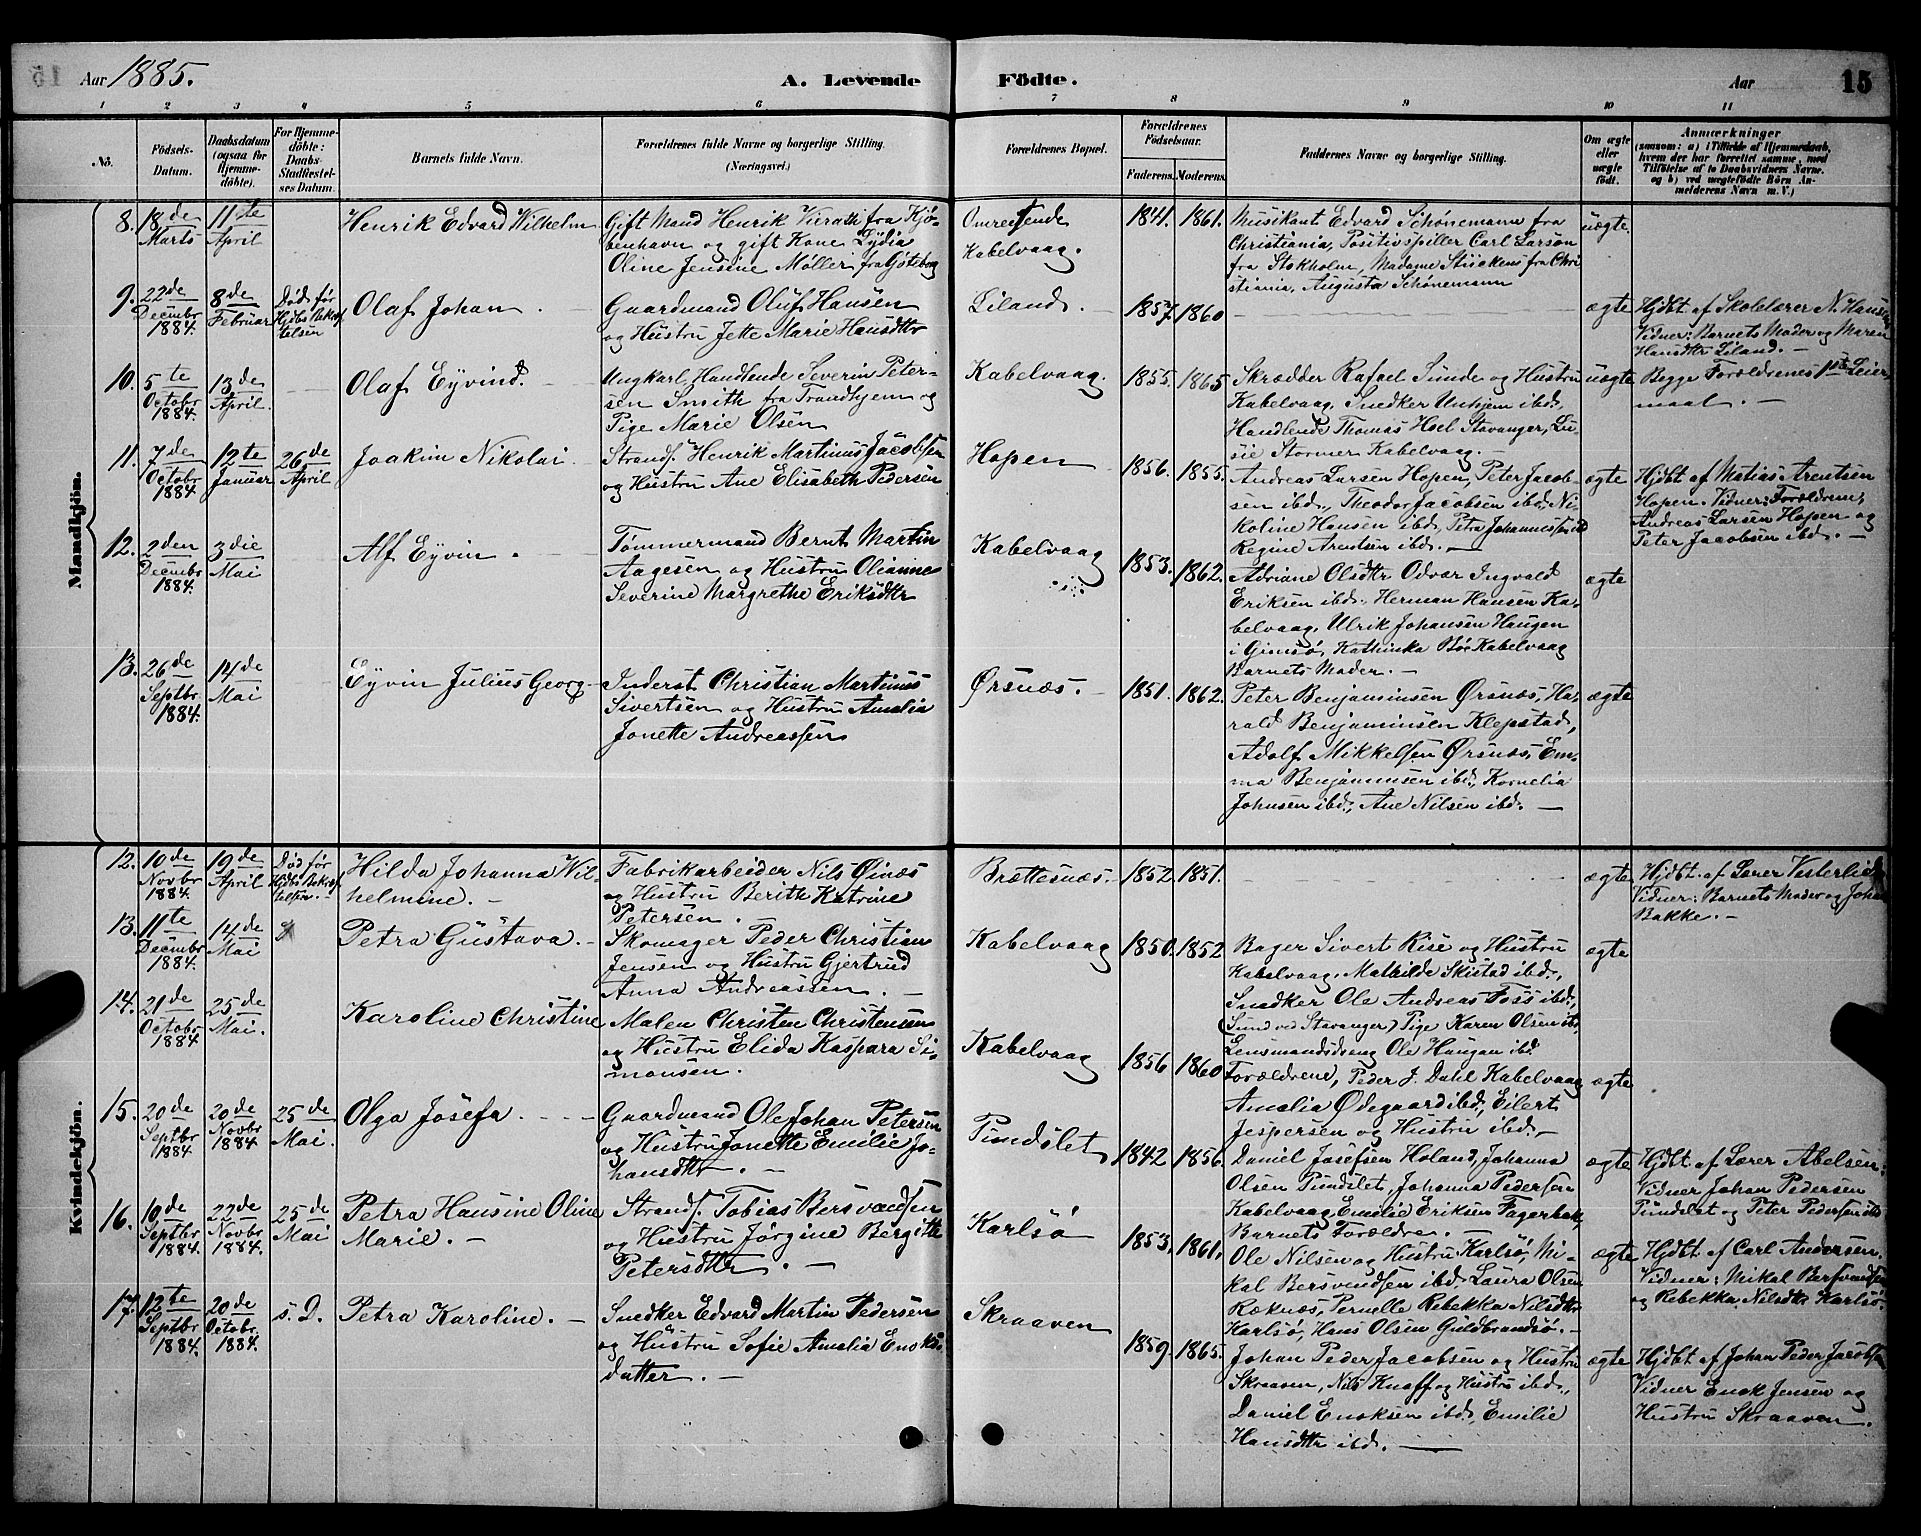 Aar 1885.
A. Levende Födte.
Aar
15
1 2 3 4 5 6 7 8 9 10 11
No.
Födsels-
Datum.
Daabsdatum
(ogsaa for
Hjemme-
döbte).
For Hjemme-
döbte:
Daabs-
Stadfæstel-
ses Datum.
Barnets fulde Navn.
Forældrenes fulde Navne og borgerlige Stilling.
(Næringsvei.)
Forældrenes Bopæl.
Forældrenes
Födselsaar.
Faderens. Moderens.
Faddernes Navne og borgerlige Stilling.
Om ægte
eller
uægte
født.
Anmærkninger
(saasom: a) i Tilfælde af Hjemmedaab,
hvem der har forrettet samme, med
Tilföielse af to Daabsvidners Navne,
og b) ved uægtefödte Börn An-
melderens Navn m. V.)
Mandkjön.
8. 18de
Marts
11te
April
Henrik Edvard Wilhelm
Gift Mand Henrik fra Kjø-
benhavn og gift Kone Lydia
Oline Jensine Møller fra Gøteborg
Omreisende
Kabelvaag.
1841. 1861.
Musikant Edvard Schønemann fra
Christiania, Positivspiller Carl Larson
fra Stokholm, Madame Stücken fra Chri
stiania, Augusta Schønemann
uægte.
9. 22de
Decembr
1884
8de
Februar
Død før
Hjdbs Bekræf
telsen
Olaf Johan
Gaardmand Oluf Hansen
og Hustru Jette Marie Hansdttr
Liland.
1857. 1860
ægte
Hjdbt af Skolelærer N. Hansen
Vidner: Barnets Moder og Maren
Hansdttr Liland.
10. 5te
Octobr
1884.
13de
April.
Olaf Eyvind.
Ungkarl, Handlende Severin Peter-
sen Smith fra Trondhjem og
Pige Marie Olsen
Kabelvaag.
1855. 1865
Skrædder Rafael Sunde og Hustru
Kabelvaag, Snedker Unhjem ibd.,
Handlende Thomas Hoel Stavanger, Lu-
sie Stormer Kabelvaag.
uægte
Begge Forældrenes 1ste Leier-
maal.
11. 7de
Octobr
1884
12te
Januar
26de
April
Joakim Nikolai
Strands. Henrik Martinus Jacobsen
og Hustru Ane Elisabeth Pedersen
Hopen
1856. 1855.
Andreas Larsen Hopen, Peter Jacob-
sen ibd., Theodor Jacobsen ibd, Ni-
koline Hansen ibd., Petra Johannessen ibd
Regine Arentsen ibd.
ægte
Hjdbt af Matias Arentsen
Hopen. Vidner: Forældrene,
Andreas Larsen Hopen og
Peter Jacobsen ibd.
12. 2den
Decembr
1884.
3die
Mai
Alf Eyvin
Tømmermand Bernt Martin
Aagesen og Hustru Olianne
Severine Margrethe Eriksdttr
Kabelvaag
1853. 1862.
Adriane Olsdttr Odvær Ingvald
Eriksen ibd., Herman Hansen Ka-
belvaag, Ulrik Johansen Haugen
i Gimsø, Kathinka Bør Kabelvaag
Barnets Moder.
ægte
13. 26de
Septbr
1884.
14de
Mai
Eyvin Julius Georg
Inderst Christian Martinus
Sivertsen og Hustru Amalia
Jonette Andreassen
Ørsnæs.
1851. 1862.
Peter Benjaminsen Ørsnæs, Ha-
rald Benjaminsen Klepstad,
Adolf Mikkelsen Ørsnæs, Em-
ma Benjaminsen ibd., Kornelia
Johnsen ibd., Ane Nilsen ibd.
ægte
Kvindekjön.
12. 10de
Novbr
1884.
19de
April
Død før
Hjdbs Bekræf
telsen.
Hilda Johanna Wil-
helmine.
Fabrikarbeider Nils Øinæs
og Hustru Berith Katrine
Petersen.
Brættesnæs.
1852 1851.
ægte
Hjdbt. af Lærer Vesterlid
Vidner: Barnets Moder og Johan
Bakke.
13. 11te
Decembr
1884.
14de
Mai
Petra Gustava.
Skomager Peder Christian
Jensen og Hustru Gjertrud
Anna Andreassen.
Kabelvaag
1850. 1852
Bager Sivert Rise og Hustru
Kabelvaag, Mathilde Skistad ibd.,
Snedker Ole Andreas Foss ibd.,
(Sund ved Stavanger) Pige Karen Olsen ibd
Lensmandsdreng Ole Haugan ibd.
ægte
14. 21de
Octobr
1884
25de
Mai.
Karoline Christine
Maler Christen Christensen
og Hustru Elida Kaspara Si-
monsen.
Kabelvaag
1856 1860
Forældrene, Peder J. Dahl Kabelvaag
Amalia Ødegaard ibd., Eilert
Jespersen og Hustru ibd.
ægte
15. 20de
Septbr
1884.
20de
Novbr
1884.
25de
Mai.
Olga Josefa.
Gaardmand Ole Johan Petersen
og Hustru Jonette Emilie Jo-
hansdttr.
Pundslet
1842 1856.
Daniel Josefsen Holand, Johanna
Olsen Pundslet, Johanna Pedersen
Kabelvaag, Emilie Eriksen Fagerbak,
Barnets Forældre.
ægte
Hjdbt. af Lærer Abelsen.
Vidner Johan Pedersen
Pundslet og Peter Pedersen ibd
16. 19de
Septbr
1884.
22de
Novbr
1884.
25de
Mai
Petra Hansine Oline
Marie.
Strands. Tobias Bersvendsen
og Hustru Jørgine Bergitte
Petersdttr.
Karlsø
1853. 1861.
Ole Nilsen og Hustru Karlsø, Mi-
kal Bersvendsen ibd. Laura Olsen
Ræknæs, Pernelle Rebekka Nilsdttr
Karlsø, Hans Olsen Guldbrandsø.
ægte
Hjdbt. af Carl Andersen.
Vidner: Mikal Bersvendsen
og Rebekka Nilsdttr Karlsø.
17. 12te
Septbr
1884.
20de
Octobr.
1884.
s. D.
Petra Karoline.
Snedker Edvard Martin Pedersen
og Hustru Sofie Amalia Enoks-
datter.
Skraaven
1859. 1865.
Johan Peder Jacobsen og Hustru
Skraaven, Nils Knaff og Hustru ibd.,
Daniel Enoksen ibd., Emilie
Hansdttr ibd.
ægte
Hjdbt af Johan Peder Jacobsen
Vidner Enok Jensen og
Hustru Skraaven.